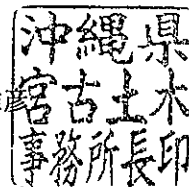 沖縄県
彦
宮古土木
事務所長印